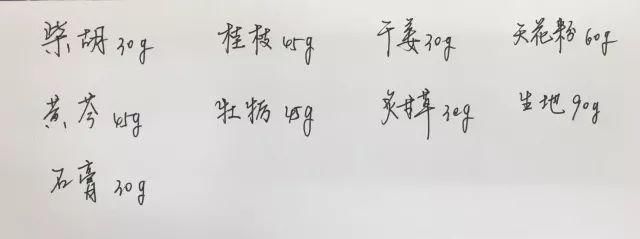 柴胡30g 桂枝45g 干姜30g 天花粉60g
黄芩45g 牡牞45g 炙甘草30g 生地90g
石膏30g